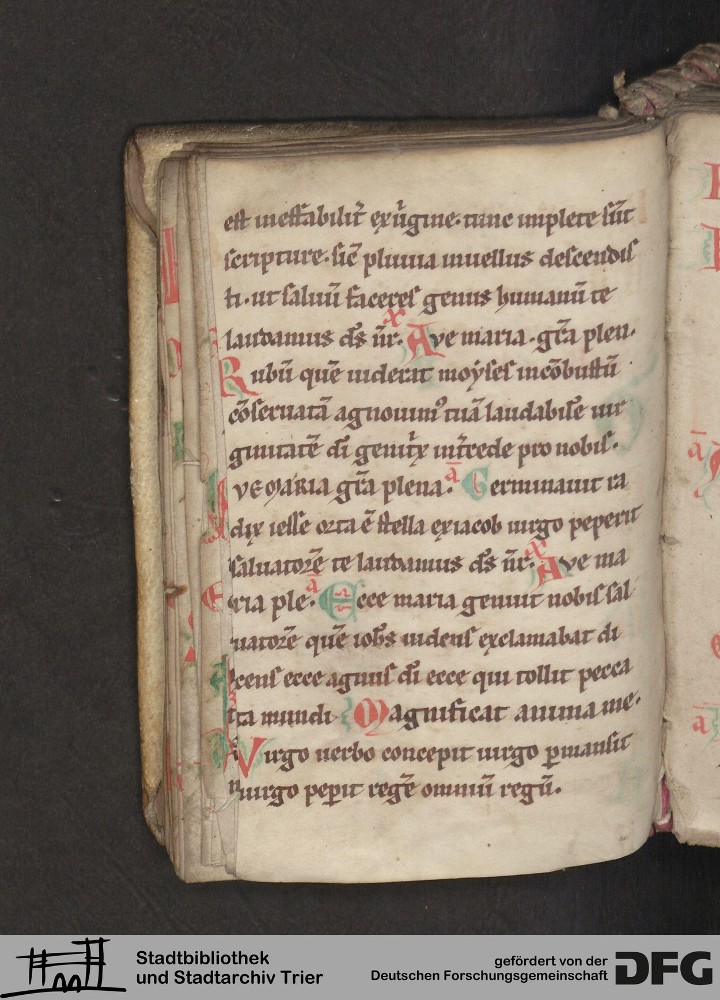 est ineffabilit̃ exũgine· tunc implete sũt
scripture· sic̃ pluuia inuellus descendis
ti· ut saluũ faceres genus humanũ te
laudamus dš nr̃· Ave maria· gr̃a plen·
Rubũ quẽ uiderat moẏses incõbustũ
cõseruatã agnouimꝰ tuã laudabilẽ uir
ginitatẽ di genitx̃ int̃cede pro nobis·
AVE MARIA gr̃a plena· ā Germinauit ra
dix iesse orta ẽ stella exiacob uirgo peperit
saluatorẽ te laudamus dš nr̃· Ave ma
ria ple· ā Ecce maria genuit nobis sal
uatorẽ quẽ iohs uidens exclamabat di
cens ecce agnus di ecce qui tollit pecca
ta mundi Magnificat anima me·
Virgo uerbo concepit uirgo ꝑmansit
uirgo peꝑit regẽ omniũ regũ·
Stadtbibliothek
und Stadtarchiv Trier
gefördert von der
Deutschen Forschungsgemeinschaft
DFG